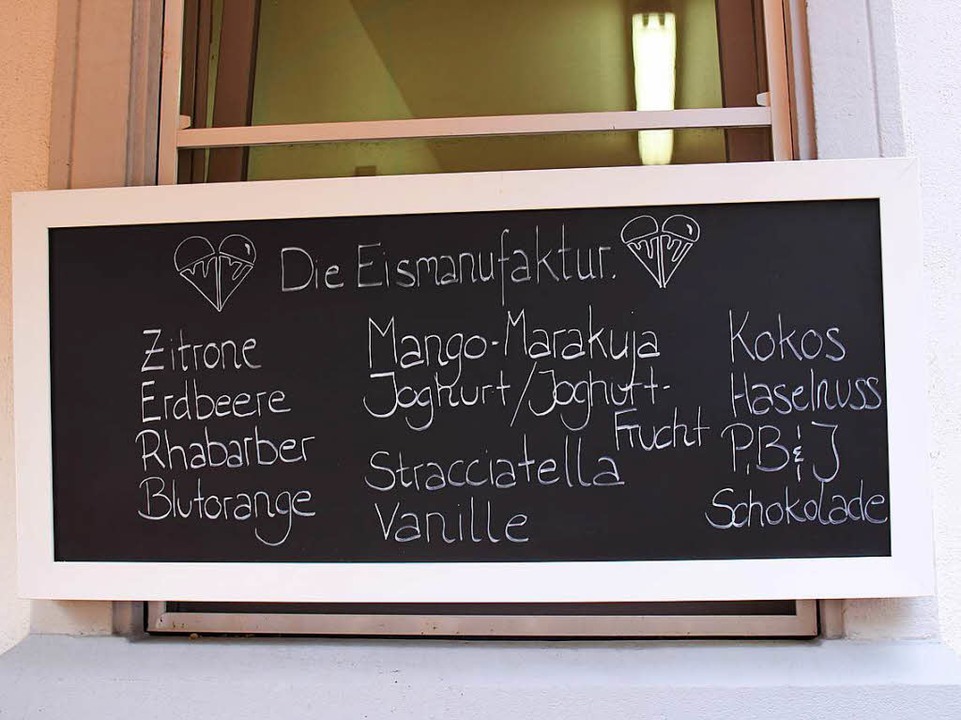 Die Eismanufaktur.
Zitrone
Erdbeere
Rhabarber
Blutorange
Mango-Marakuja
Joghurt/Joghurt-
Frucht
Stracciatella
Vanille
Kokos
Haselnuss
P.B&J
Schokolade